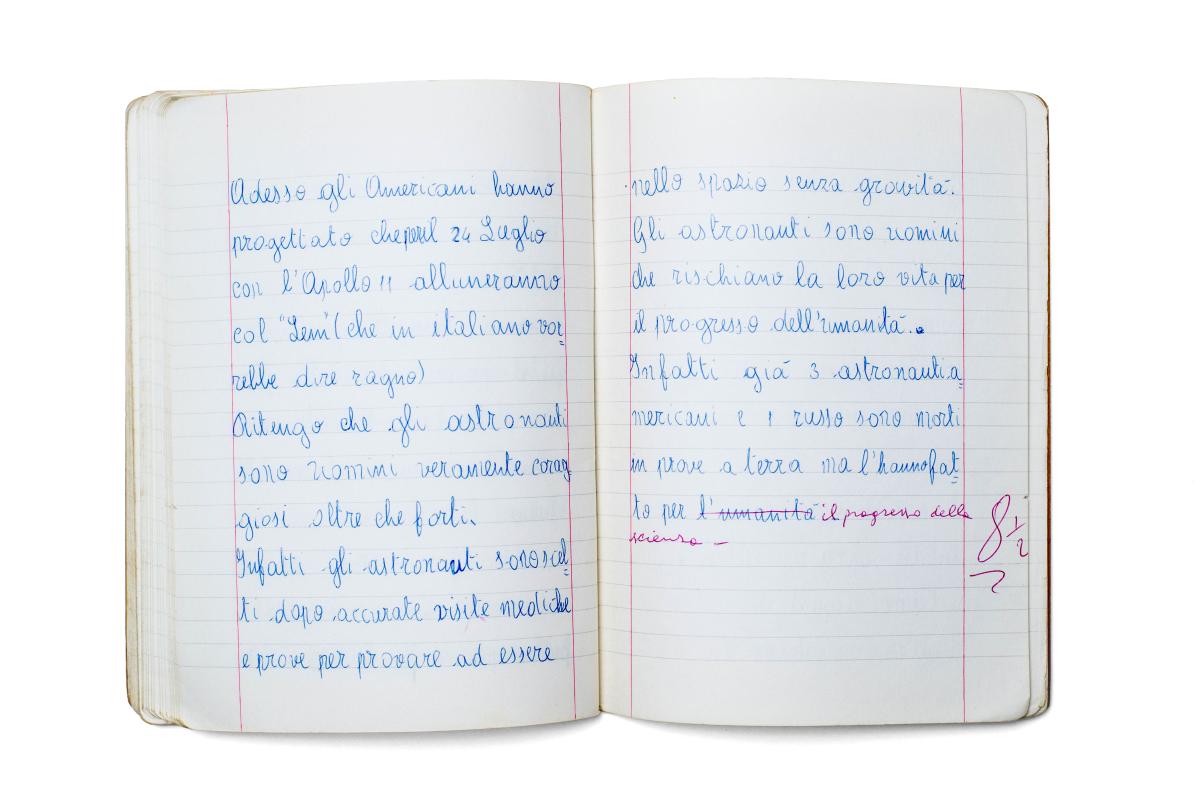 Adesso gli Americani hanno
progettato che per il 24 Luglio
con l'Apollo 11 alluneranno
col "Lem" (che in italiano vor=
rebbe dire ragno)
Ritengo che gli astronauti
sono uomini veramente corag=
giosi oltre che forti.
Infatti gli astronauti sono scel=
ti dopo accurate visite mediche
e prove per provare ad essere
nello spazio senza gravità.
Gli astronauti sono uomini
che rischiano la loro vita per
il progresso dell'umanità.
Infatti già 3 astronauti a=
mericani e 1 russo sono morti
in prove a terra ma l'hanno fat=
to per l'umanità il progresso della
scienza -
8 1/2